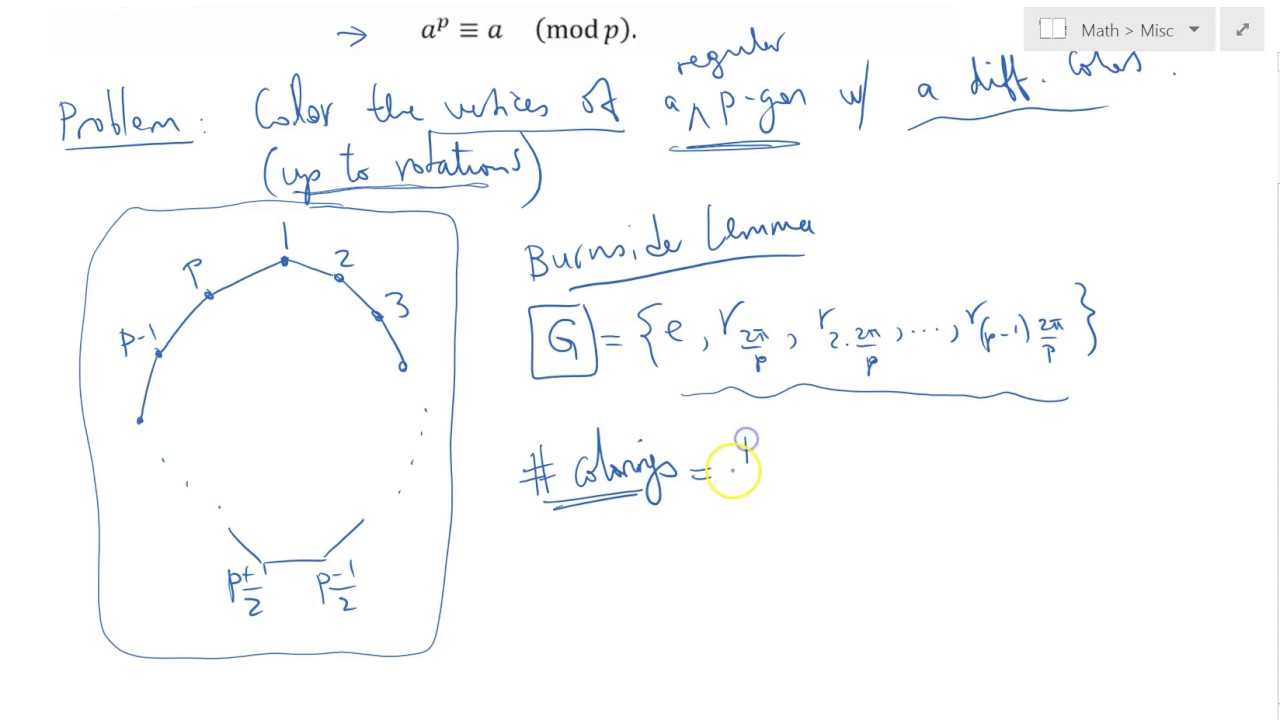 → a^p ≡ a (mod p).
Math > Misc
regular
Problem: Color the vertices of a ∧ p-gon w/ a diff. colors.
(up to rotations)
1
2
3
P
P-1
P+1/2
P-1/2
Burnside Lemma
G = {e, r_{2π/p}, r_{2·2π/p}, ..., r_{(p-1)2π/p}}
# colorings = 1